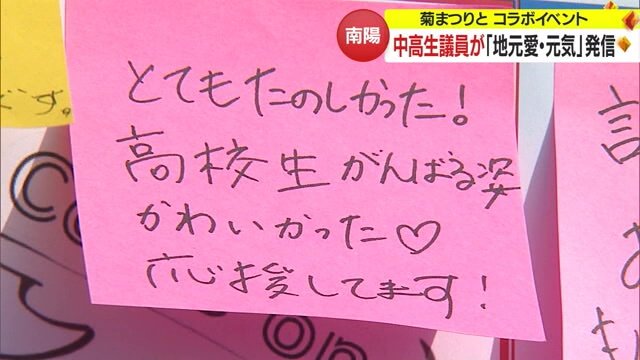 菊まつりと コラボイベント
南陽
中高生議員が「地元愛・元気」発信
とてもたのしかった!
高校生がんばる姿
かわいかった♡
応援してます!
です。